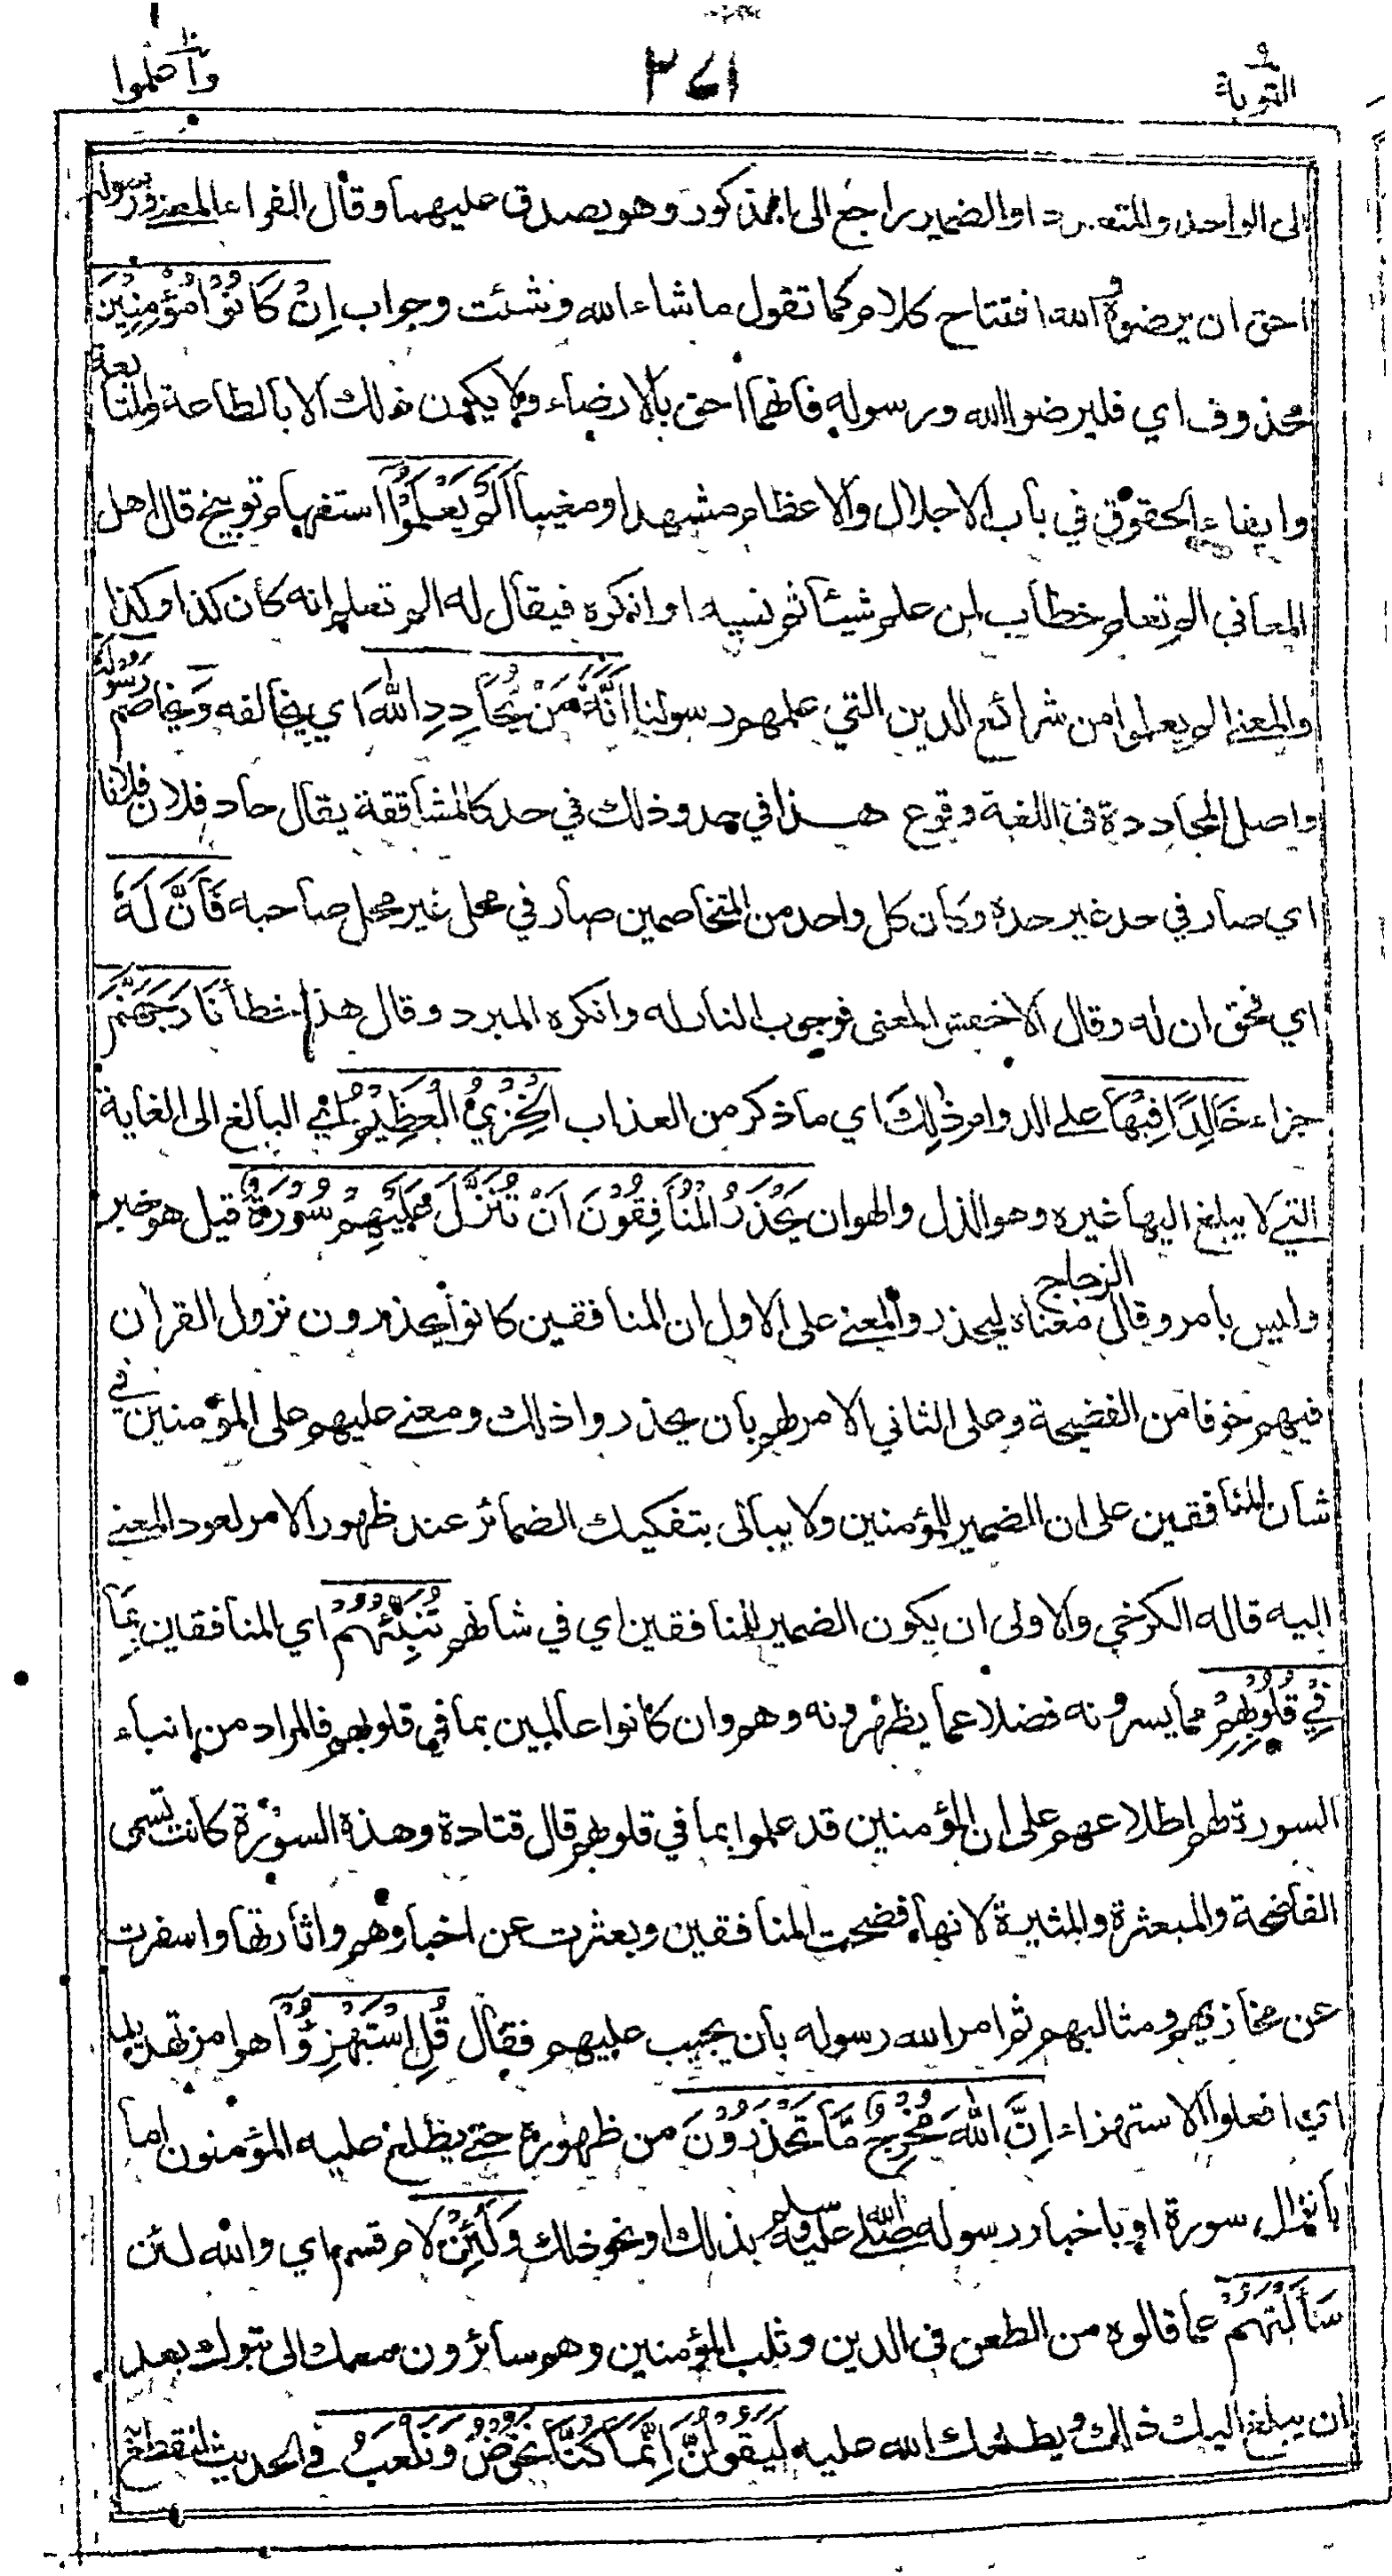 التوبة ٩
٢٧١
واعلموا ١٠
الى الواحد والمتعدد او الضمير راجع الى المذكور وهو يصدق عليهما وقال الفراء المعنى ورسوله
احق ان يرضوه والله افتتاح كلام كما تقول ما شاء الله وشئت وجواب اِنْ كَانُوْا مُؤْمِنِيْنَ
محذوف اي فليرضوا الله ورسوله فانهما احق بالارضاء ولا يكون ذلك الا بالطاعة والمتابعة
وايفاء الحقوق في باب الاجلال والاعظام مشهدا ومغيبا اَلَمْ يَعْلَمُوْا استفهام توبيخ قال اهل
المعاني الم تعلم خطاب لمن علم شيئا ثم نسيه او انكره فيقال له الم تعلم انه كان كذا وكذا
والمعنى الم يعلموا من شرائع الدين التي علمهم رسولنا اَنَّهٗ مَنْ يُّحَادِدِ اللّٰهَ اي يخالفه وَيخاصم رَسُوْلَهٗ
واصل المحاددة في اللغة وقوع هذا في حد وذلك في حد كالمشاققة يقال حاد فلان فلانا
اي صار في حد غير حده وكان كل واحد من المتخاصمين صار في محل غير محل صاحبه فَاَنَّ لَهٗ
اي فحق ان له وقال الاخفش المعنى فوجوب النار له وانكره المبرد وقال هذا خطأ نَارَ جَهَنَّمَ
جزاء خَالِدًا فِيْهَا على الدوام ذٰلِكَ اي ما ذكر من العذاب الْخِزْيُ الْعَظِيْمُ اي البالغ الى الغاية
التي لا يبلغ اليها غيره وهو الذل والهوان يَحْذَرُ الْمُنَافِقُوْنَ اَنْ تُنَزَّلَ عَلَيْهِمْ سُوْرَةٌ قيل هو خبر
وليس بامر وقال الزجاج معناه ليحذر والمعنى على الاول ان المنافقين كانوا يحذرون نزول القران
فيهم خوفا من الفضيحة وعلى الثاني الامر لهم بان يحذروا ذلك ومعنى عليهم على المؤمنين في
شان المنافقين على ان الضمير للمؤمنين ولا يبالى بتفكيك الضمائر عند ظهور الامر لعود المعنى
اليه قاله الكرخي والاولى ان يكون الضمير للمنافقين اي في شانهم تُنَبِّئُهُمْ اي المنافقين بِمَا
فِيْ قُلُوْبِهِمْ مما يسرونه فضلا عما يظهرونه وهم وان كانوا عالمين بما في قلوبهم فالمراد من انباء
السورة لهم اطلاعهم على ان المؤمنين قد علموا بما في قلوبهم قال قتادة وهذه السورة كانت تسمى
الفاضحة والمبعثرة والمثيرة لانها فضحت المنافقين وبعثرت عن اخبارهم واثارتها واسفرت
عن مخازيهم ومثالبهم ثم امر الله رسوله بان يجيب عليهم فقال قُلِ اسْتَهْزِءُوْا هو امر تهديد
اي افعلوا الاستهزاء اِنَّ اللّٰهَ مُخْرِجٌ مَّا تَحْذَرُوْنَ من ظهوره حتى يطلع عليه المؤمنون اما
بانزال سورة او باخبار رسوله صلى الله عليه وسلم بذلك او نحو ذلك وَلَئِنْ لام قسم اي والله لئن
سَاَلْتَهُمْ عما قالوه من الطعن في الدين وثلب المؤمنين وهم سائرون معك الى تبوك بعد
ان يبلغ اليك ذلك ويطلعك الله عليه لَيَقُوْلُنَّ اِنَّمَا كُنَّا نَخُوْضُ وَنَلْعَبُ في الحديث لنقطع